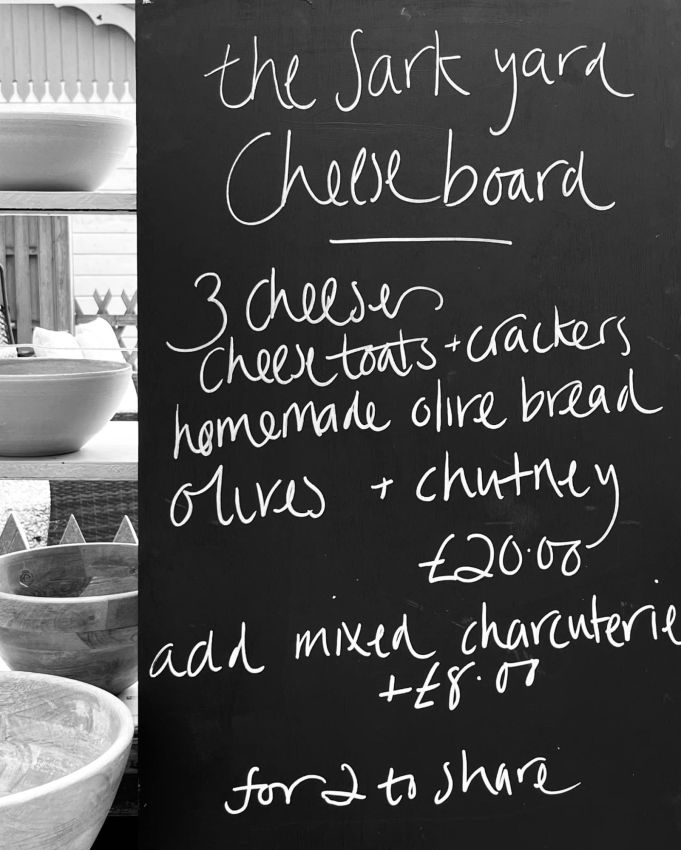 the Sark yard
Cheeseboard
3 cheeses
cheese toats + crackers
homemade olive bread
olives + chutney
£20.00
add mixed charcuterie
+£8.00
for 2 to share